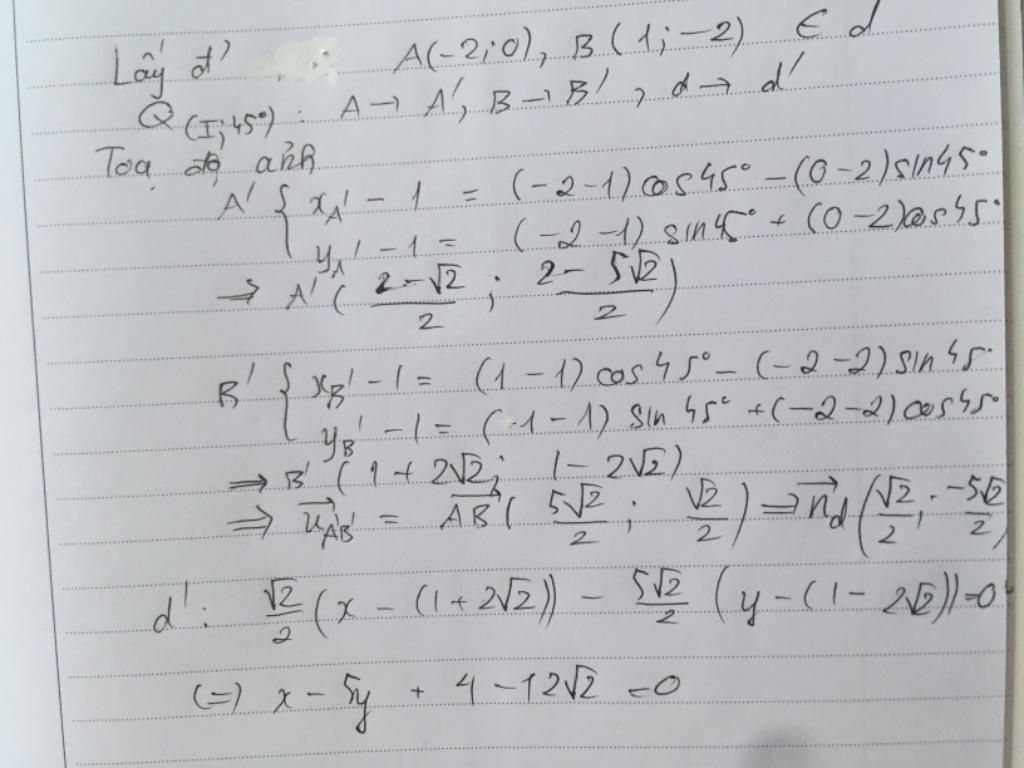 Lấy đ' A(-2;0), B(1;-2) ∈ d
Q(I;45°) : A → A', B → B', d → d'
Toạ độ ảnh
A' { xA' - 1 = (-2-1) cos45° - (0-2) sin45°
yA' - 1 = (-2-1) sin45° + (0-2)cos45°
⇒ A' ( (2-√2)/2 ; (2-5√2)/2 )
B' { xB' - 1 = (1-1) cos45° - (-2-2) sin45°
yB' - 1 = (1-1) sin45° + (-2-2) cos45°
⇒ B' ( 1+2√2; 1-2√2)
⇒ u⃗A'B' = A'B'⃗ ( 5√2/2 ; √2/2 ) ⇒ n⃗d ( √2/2 ; -5√2/2 )
d' : √2/2 (x - (1+2√2)) - 5√2/2 (y - (1-2√2)) = 0
(=) x - 5y + 4 - 12√2 = 0